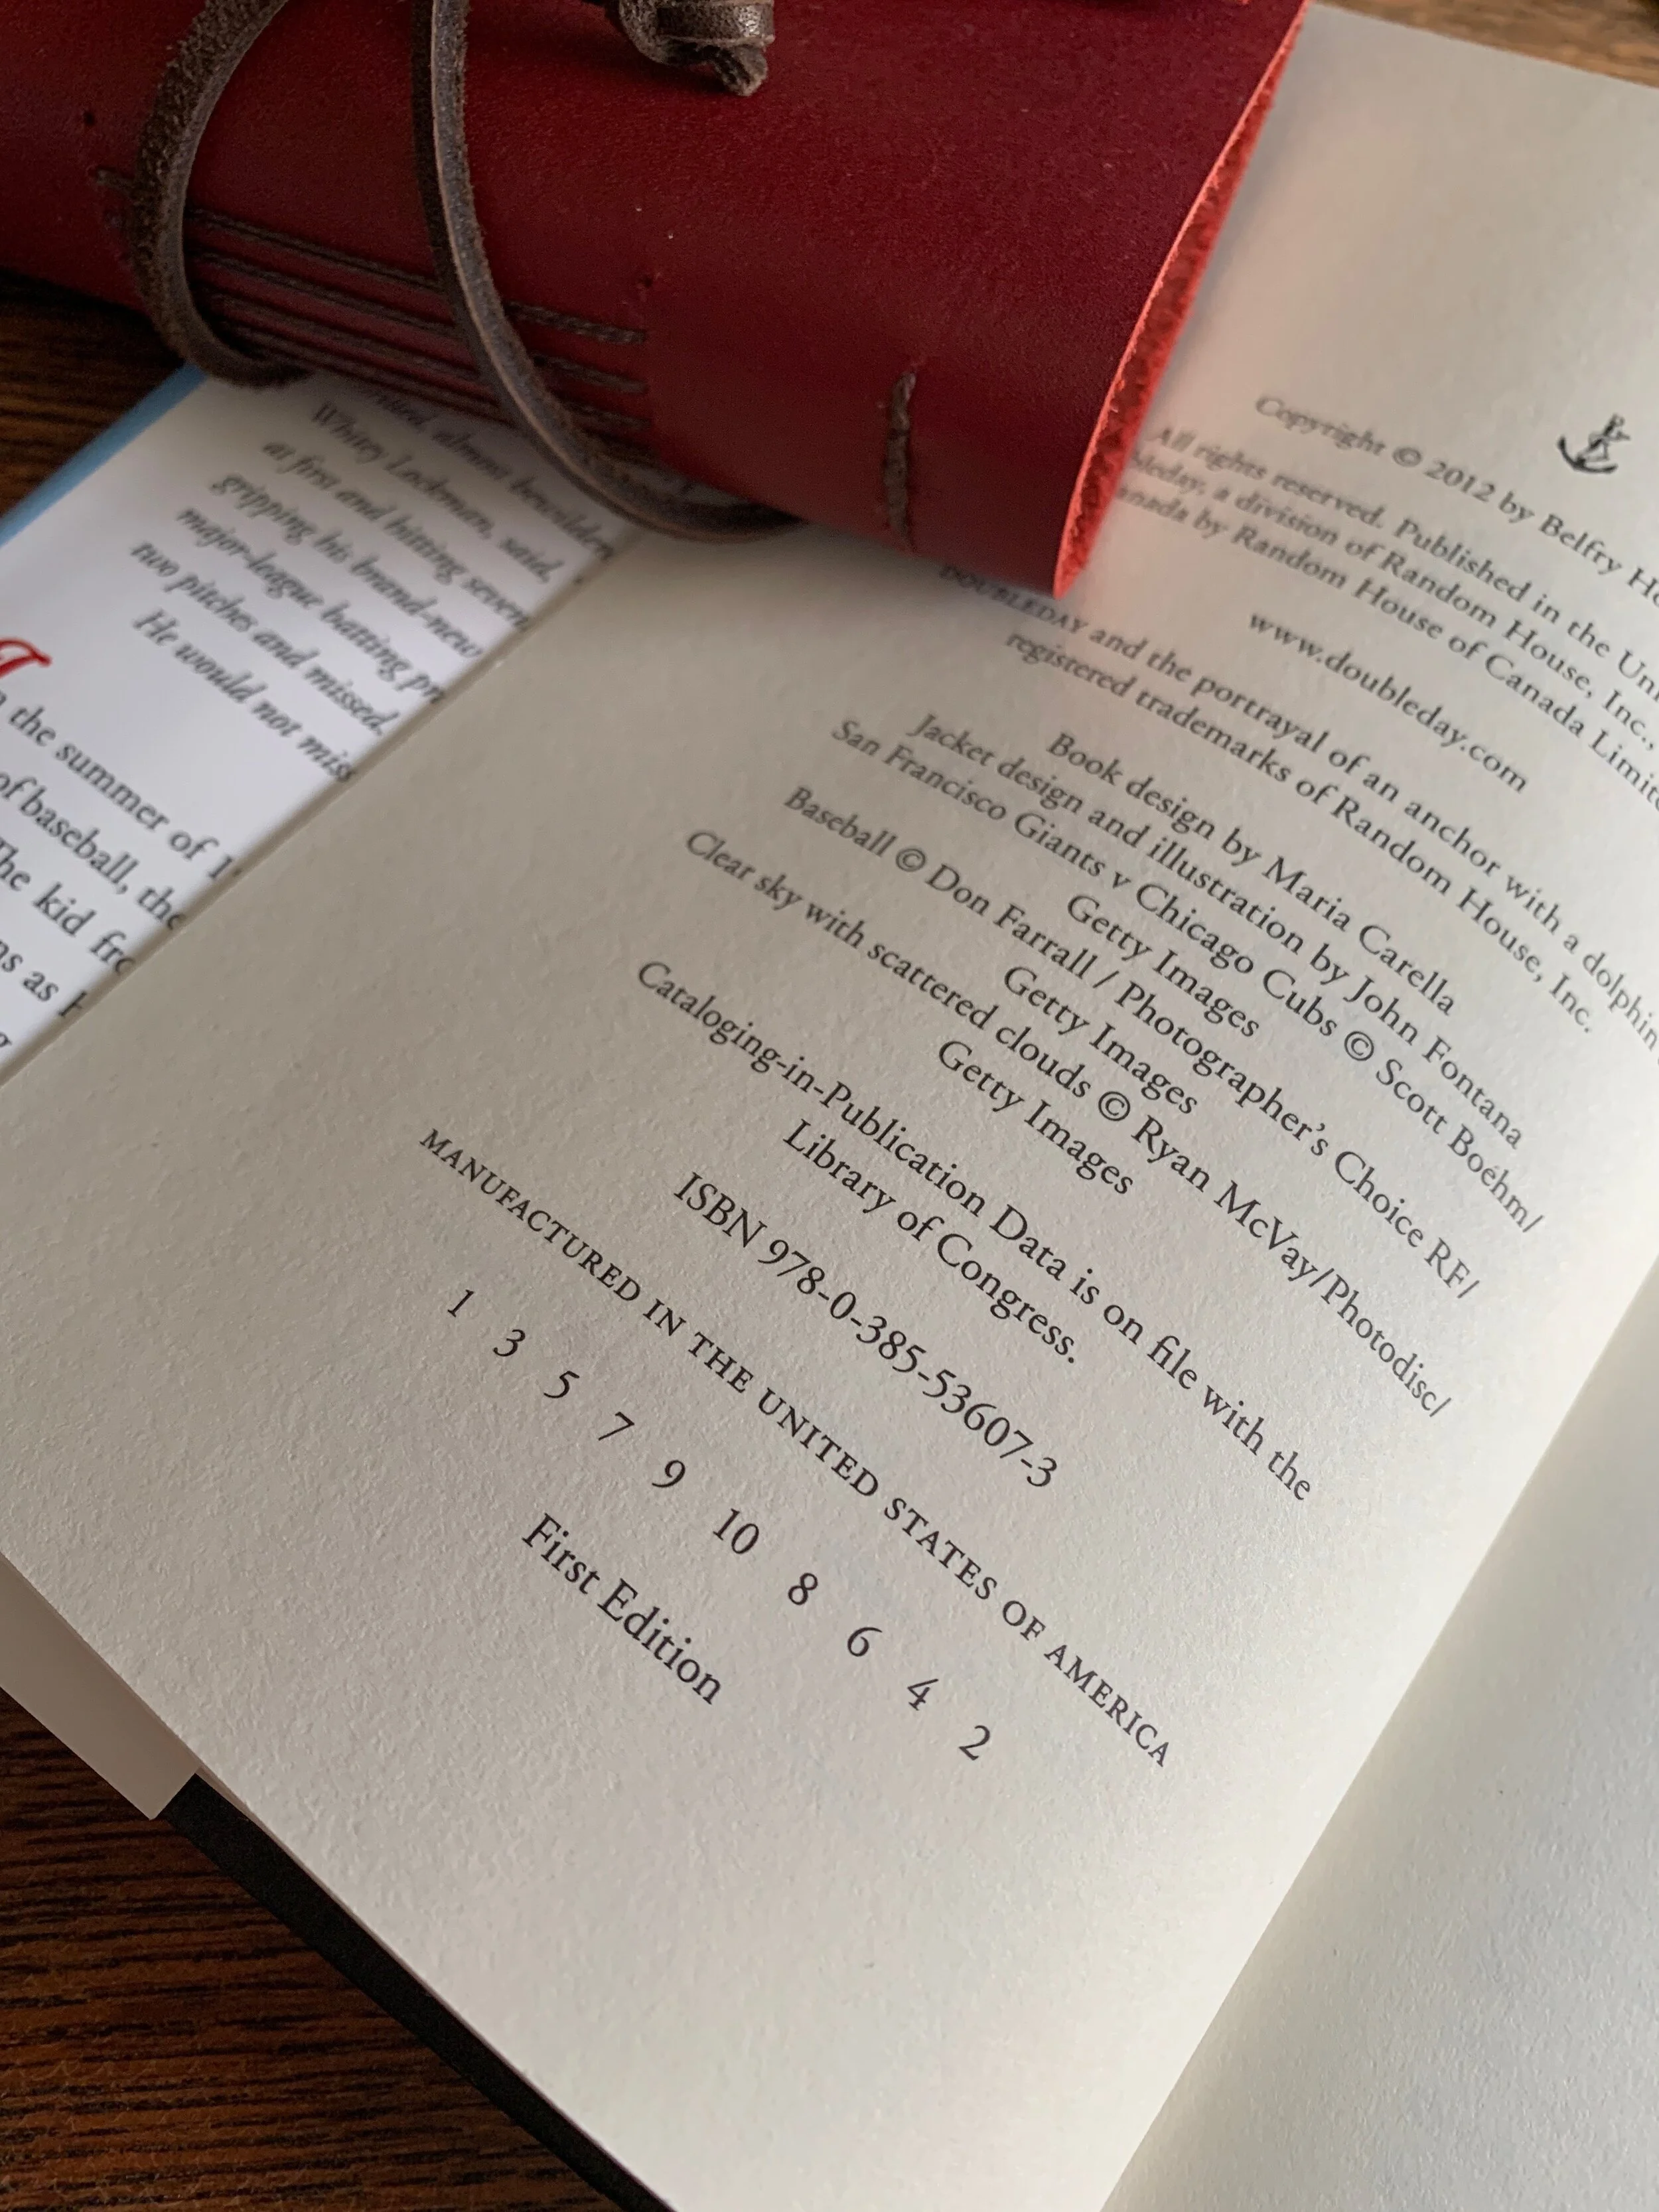 almost bewildered
Whitey Lockman, said,
at first and hitting seven
gripping his brand-new
major-league batting pr
two pitches and missed.
He would not miss
the summer of 1
of baseball, the
The kid fro
ns as
Copyright © 2012 by Belfry Ho
All rights reserved. Published in the Uni
bleday, a division of Random House, Inc.,
anada by Random House of Canada Limite
www.doubleday.com
DOUBLEDAY and the portrayal of an anchor with a dolphin
registered trademarks of Random House, Inc.
Book design by Maria Carella
Jacket design and illustration by John Fontana
San Francisco Giants v Chicago Cubs © Scott Boehm/
Getty Images
Baseball © Don Farrall / Photographer's Choice RF/
Getty Images
Clear sky with scattered clouds © Ryan McVay/Photodisc/
Getty Images
Cataloging-in-Publication Data is on file with the
Library of Congress.
ISBN 978-0-385-53607-3
MANUFACTURED IN THE UNITED STATES OF AMERICA
1 3 5 7 9 10 8 6 4 2
First Edition